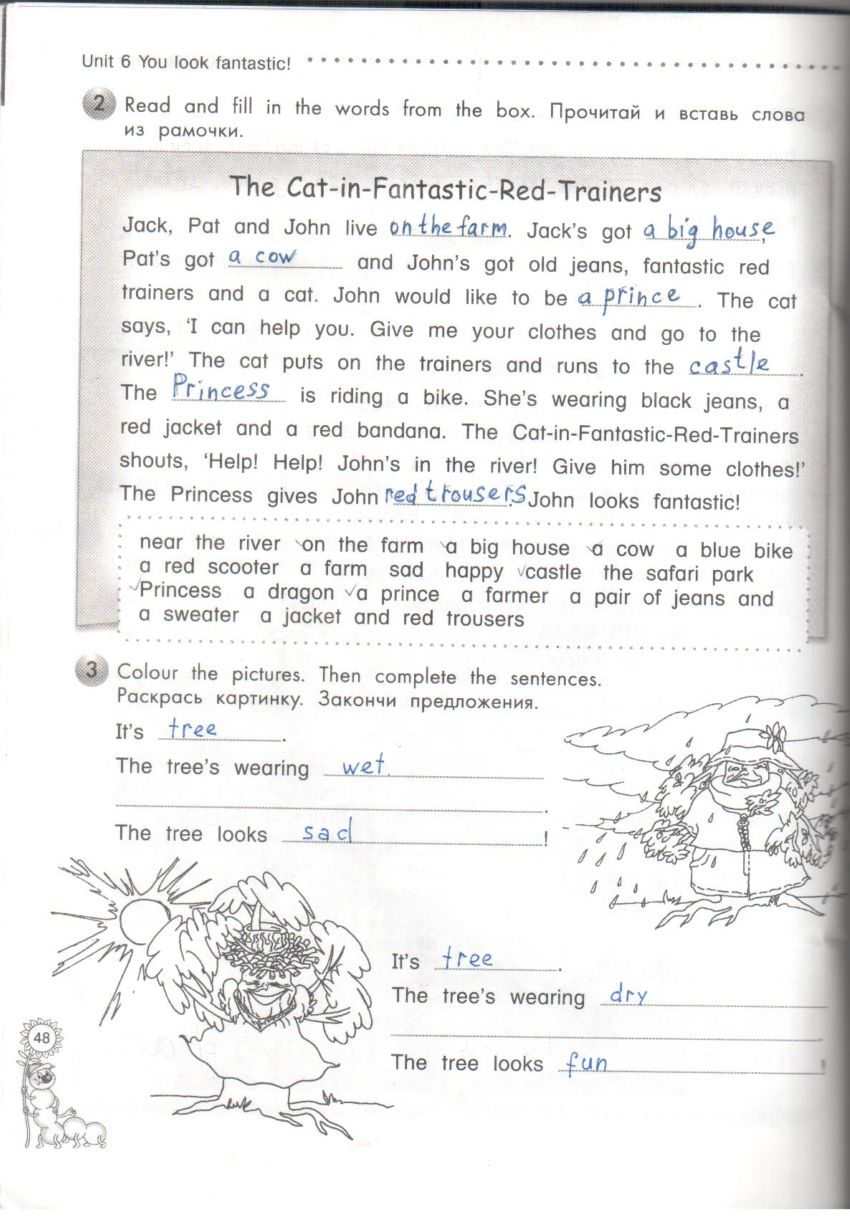 Unit 6 You look fantastic!
2 Read and fill in the words from the box. Прочитай и вставь слова
из рамочки.
The Cat-in-Fantastic-Red-Trainers
Jack, Pat and John live on the farm. Jack's got a big house,
Pat's got a cow and John's got old jeans, fantastic red
trainers and a cat. John would like to be a prince. The cat
says, 'I can help you. Give me your clothes and go to the
river!' The cat puts on the trainers and runs to the castle.
The Princess is riding a bike. She's wearing black jeans, a
red jacket and a red bandana. The Cat-in-Fantastic-Red-Trainers
shouts, 'Help! Help! John's in the river! Give him some clothes!'
The Princess gives John red trousers. John looks fantastic!
near the river on the farm a big house a cow a blue bike
a red scooter a farm sad happy castle the safari park
Princess a dragon a prince a farmer a pair of jeans and
a sweater a jacket and red trousers
3 Colour the pictures. Then complete the sentences.
Раскрась картинку. Закончи предложения.
It's tree.
The tree's wearing wet
.
The tree looks sad!
It's tree.
The tree's wearing dry
.
The tree looks fun!
48